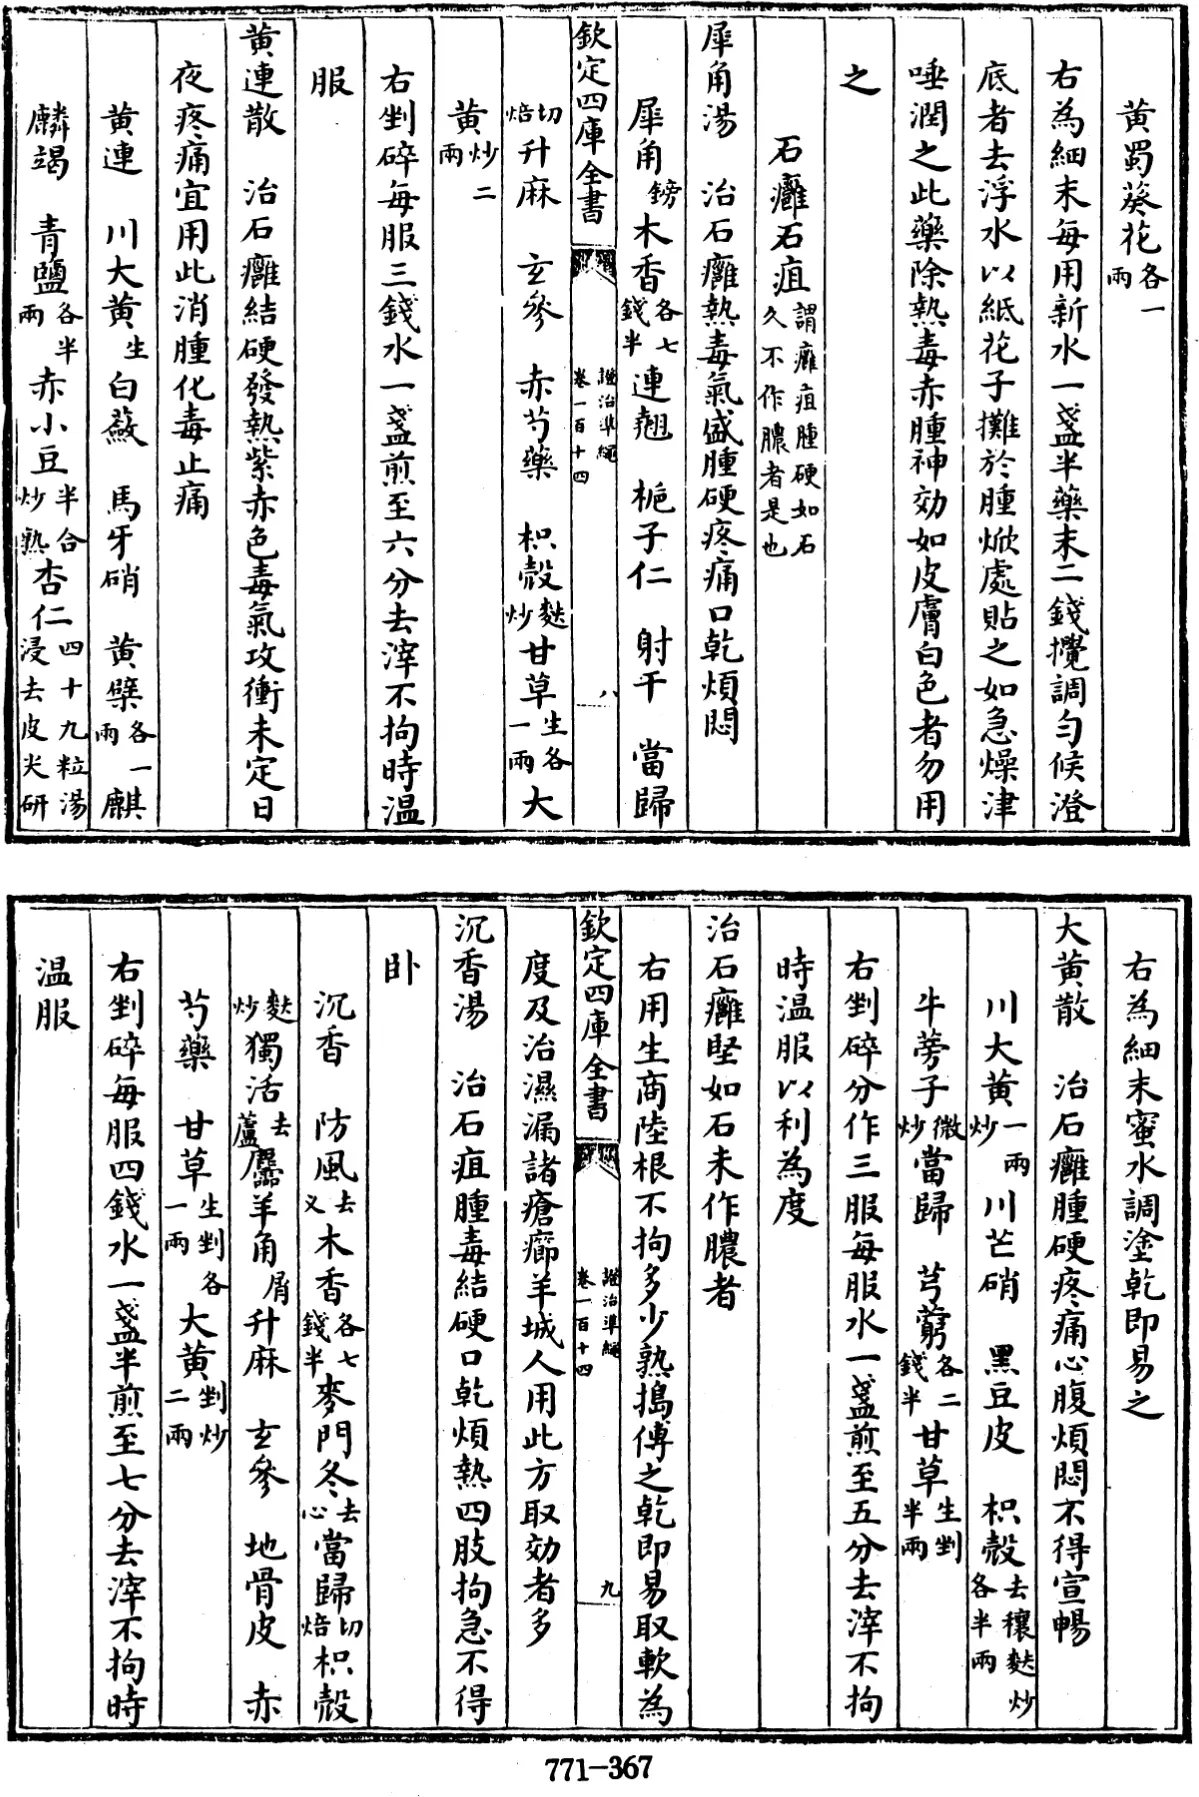 黄蜀葵花各一兩
右為細末每用新水一盞半藥末二錢攪調勻候澄
底者去浮水以紙花子攤於腫焮處貼之如急燥津
唾潤之此藥除熱毒赤腫神効如皮膚白色者勿用
之
石癰石疽謂癰疽腫硬如石久不作膿者是也
犀角湯　治石癰熱毒氣盛腫硬疼痛口乾煩悶
犀角鎊木香各七錢半連翹　梔子仁　射干　當歸
欽定四庫全書　證治準繩卷一百十四　八
切焙升麻　玄參　赤芍藥　枳殼麩炒甘草生各一兩大
黄炒二兩
右剉碎每服三錢水一盞煎至六分去滓不拘時温
服
黄連散　治石癰結硬發熱紫赤色毒氣攻衝未定日
夜疼痛宜用此消腫化毒止痛
黄連　川大黄生白蘞　馬牙硝　黄蘗各一兩麒
麟竭　青鹽各半兩赤小豆半合炒熟杏仁四十九粒湯浸去皮尖研
右為細末蜜水調塗乾即易之
大黄散　治石癰腫硬疼痛心腹煩悶不得宣暢
川大黄一兩炒川芒硝　黑豆皮　枳殼去穰麩炒各半兩
牛蒡子微炒當歸　芎藭各二錢半甘草生剉半兩
右剉碎分作三服每服水一盞煎至五分去滓不拘
時温服以利為度
治石癰堅如石未作膿者
右用生商陸根不拘多少熟搗傅之乾即易取軟為
欽定四庫全書　證治準繩卷一百十四　九
度及治濕漏諸瘡癤羊城人用此方取効者多
沉香湯　治石疽腫毒結硬口乾煩熱四肢拘急不得
卧
沉香　防風去叉木香各七錢半麥門冬去心當歸切焙枳殼
麩炒獨活去蘆麢羊角屑升麻　玄參　地骨皮　赤
芍藥　甘草生剉各一兩大黄剉炒二兩
右剉碎每服四錢水一盞半煎至七分去滓不拘時
温服
771-367